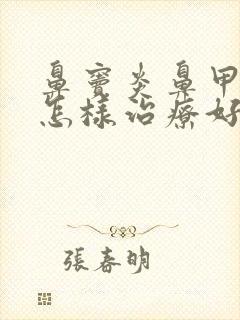 鼻竇炎鼻甲
怎樣治療好
張春明